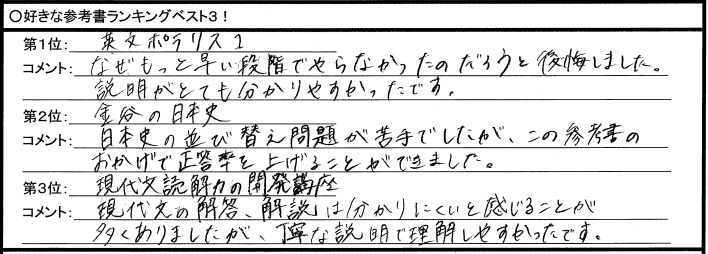 〇好きな参考書ランキングベスト3！
第1位: 英文ポラリス1
コメント: なぜもっと早い段階でやらなかったのだろうと後悔しました。
説明がとても分かりやすかったです。
第2位: 金谷の日本史
コメント: 日本史の並び替え問題が苦手でしたが、この参考書の
おかげで正答率を上げることができました。
第3位: 現代文読解力の開発講座
コメント: 現代文の解答、解説は分かりにくいと感じることが
多くありましたが、丁寧な説明で理解しやすかったです。